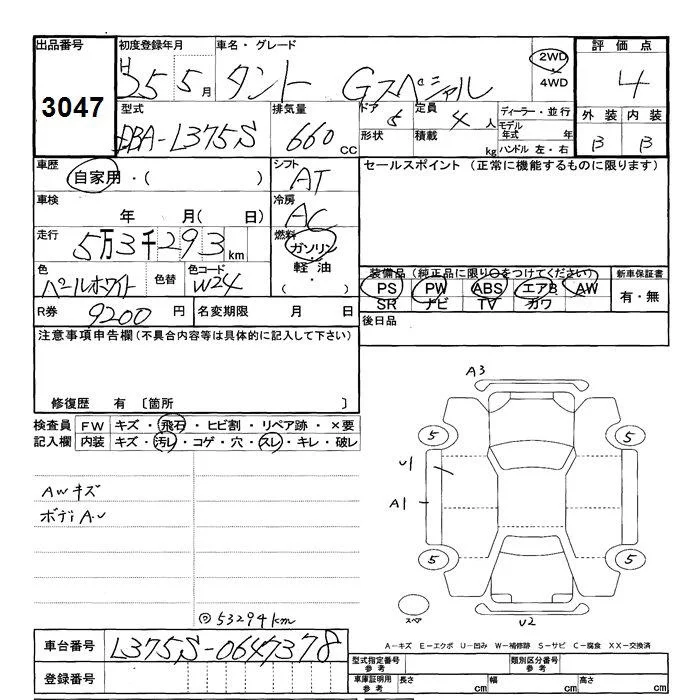 出品番号 初度登録年月 車名・グレード 評価点
3047 H 25 5月 タント Gスペシャル 2WD 4WD 4
型式 排気量 ドア 定員 ディーラー・並行 外装 内装
DBA-L375S 660 CC 5 4人 モデル年式 年 B B
形状 積載 kg ハンドル 左・右
車歴 シフト セールスポイント (正常に機能するものに限ります)
自家用・( ) AT
車検 冷房
年 月( 日) AC
走行 燃料
5万3千293km ガソリン・軽油・
色 色替 色コード 装備品 (純正品に限り〇をつけてください) 新車保証書
パールホワイト W24 PS PW ABS エアB AW 有・無
SR ナビ TV カワ
R券 9200円 名変期限 月 日 後日品
注意事項申告欄 (不具合内容等は具体的に記入して下さい)
修復歴 有 〔箇所 〕
検査員 FW キズ・飛石・ヒビ割・リペア跡・×要
記入欄 内装 キズ・汚レ・コゲ・穴・スレ・キレ・破レ
A3
5 5
U1
AWキズ
A1
ボディA.U
5 5
53294km
スペア
U2
車台番号 L375S-0647378
A-キズ E-エクボ U-凹み W-補修跡 S-サビ C-腐食 XX-交換済
登録番号
型式指定番号 参考 類別区分番号 参考
車庫証明用 参考 長さ cm 幅 cm 高さ cm